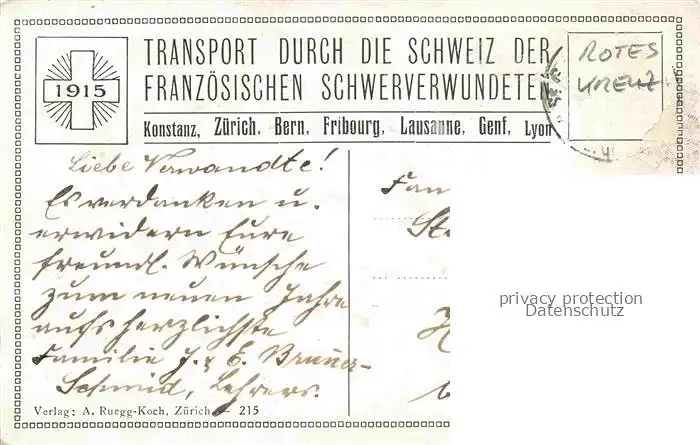 1915
TRANSPORT DURCH DIE SCHWEIZ DER
FRANZÖSISCHEN SCHWERVERWUNDETEN
Konstanz, Zürich, Bern, Fribourg, Lausanne, Genf, Lyon
ROTES
KREUZ.
Liebe Verwandte!
Es verdanken u.
erwidern Eure
freundl. Wünsche
zum neuen Jahre
aufs herzlichste
Familie J. & E. Brunner-
Schmid, Lehrers.
Fam
St
privacy protection
Datenschutz
Verlag: A. Ruegg-Koch, Zürich — 215